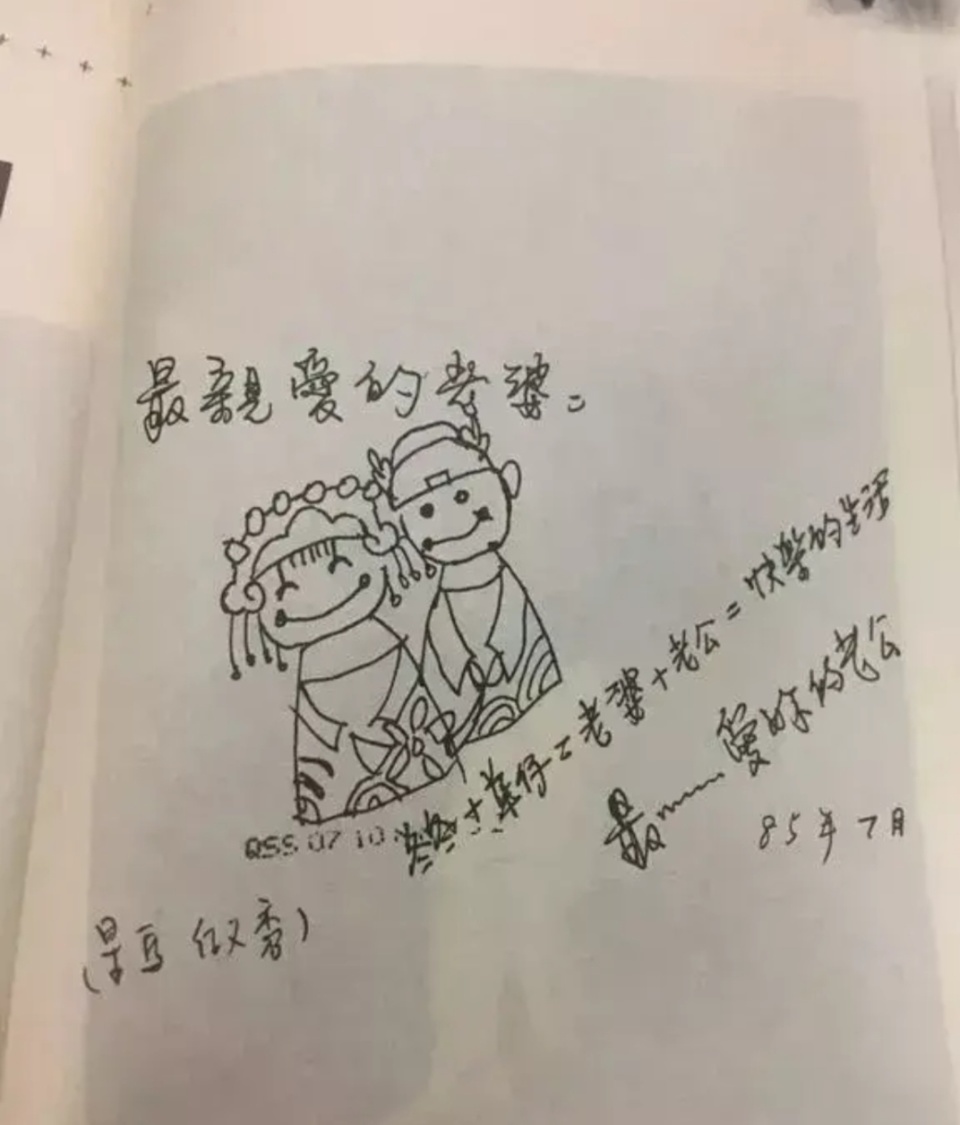 最親愛的老婆。
QSS 07 10
+華仔=老婆+老公=快樂的生活
最 愛妳的老公
85年7月